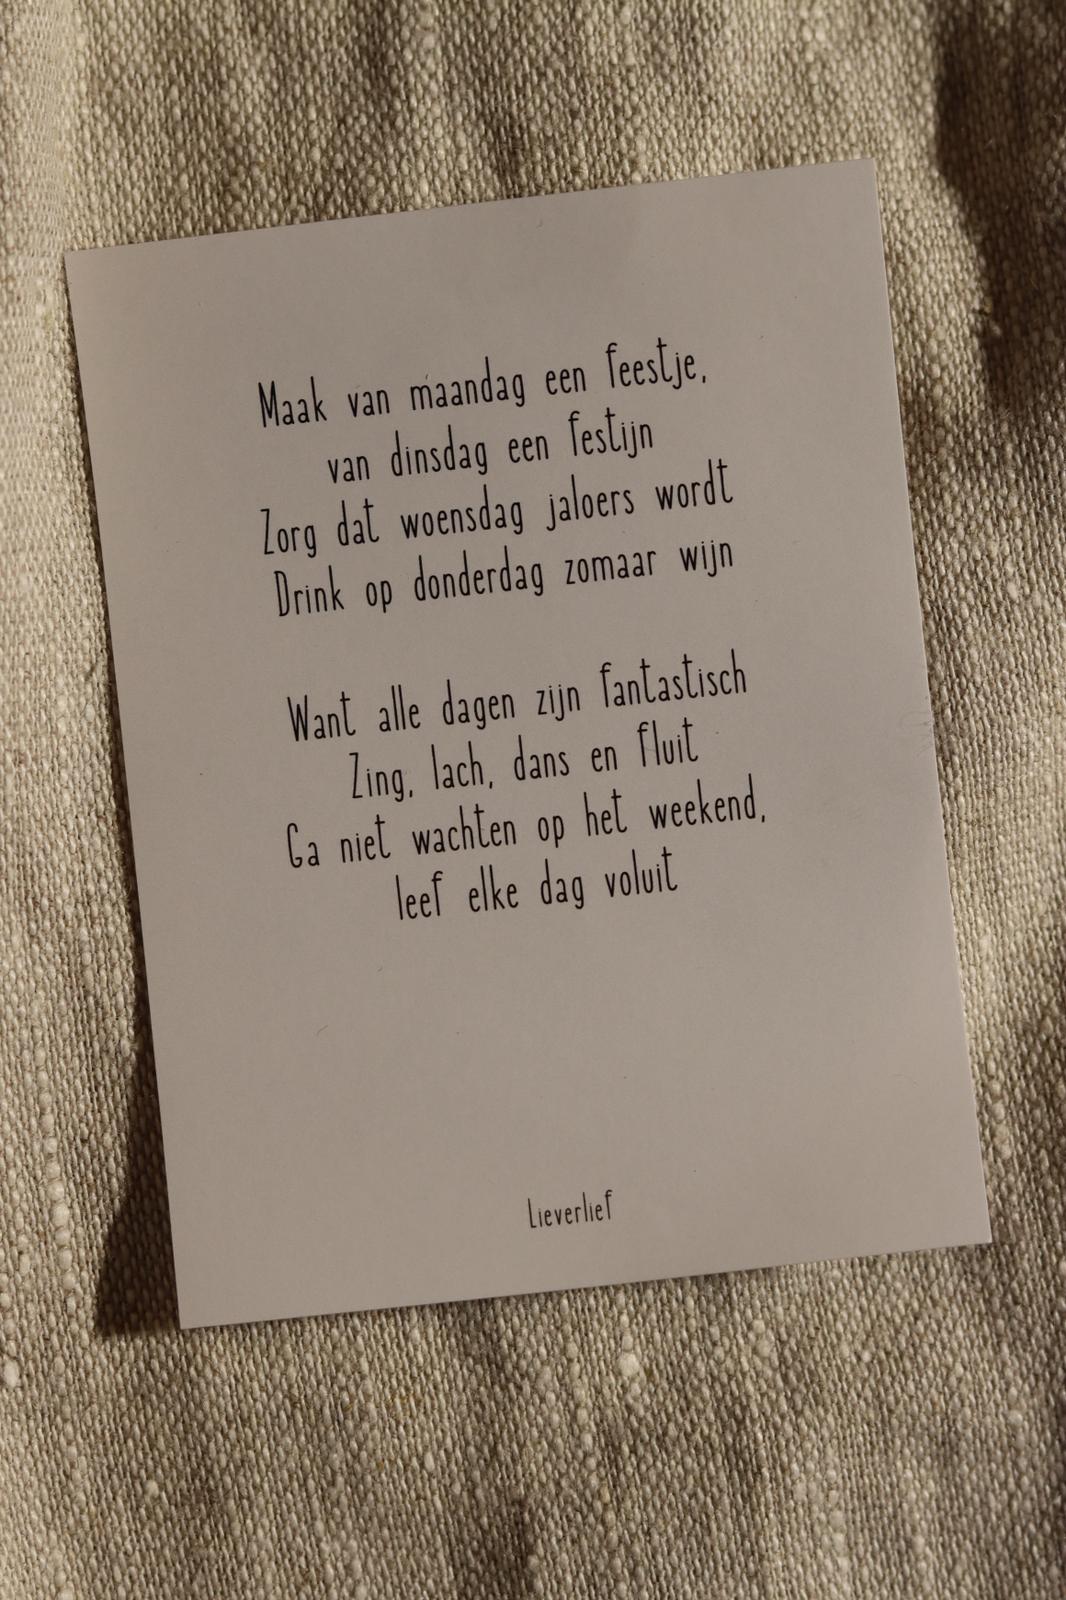 Maak van maandag een feestje,
van dinsdag een festijn
Zorg dat woensdag jaloers wordt
Drink op donderdag zomaar wijn
Want alle dagen zijn fantastisch
Zing, lach, dans en fluit
Ga niet wachten op het weekend,
leef elke dag voluit
Lieverlief